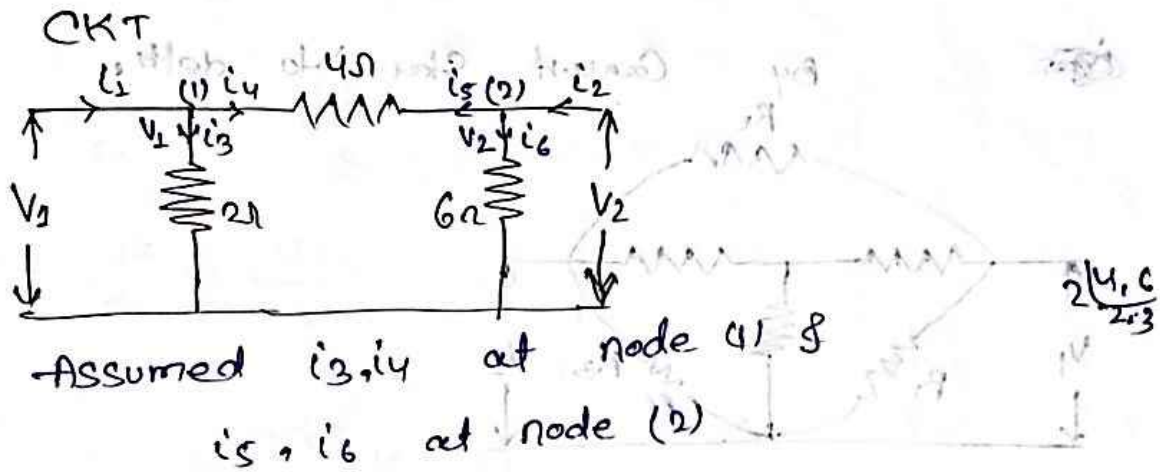 CKT
i1 (1) i4 4Ω i5 (2) i2
V1 i3 V2 i6
V1 2Ω 6Ω V2
2 4, 6
2, 3
Assumed i3, i4 at node (1) &
i5, i6 at node (2)